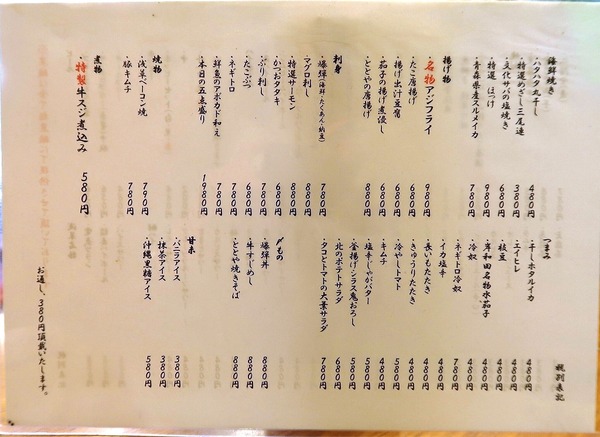 海鮮焼き
・ハタハタ丸干し 480円
・特選めざし三尾連 380円
・文化サバの塩焼き 680円
・特選 ほっけ 980円
・青森県産スルメイカ 780円
揚げ物
・名物アジフライ 980円
・たこ唐揚げ 680円
・揚げ出汁豆腐 680円
・茄子の揚げ煮浸し 680円
・ととやの唐揚げ 880円
刺身
・爆弾(海鮮・たくあん・納豆) 780円
・マグロ刺し 880円
・特選サーモン 880円
・かつおタタキ 680円
・ぶり刺し 780円
・たこぶつ 680円
・ネギトロ 780円
・鮮魚のアボカド和え 780円
・本日の五点盛り 1980円
焼物
・浅草ベーコン焼 790円
・豚キムチ 780円
煮物
・特製牛スジ煮込み 580円
つまみ
・干しホタルイカ 480円
・エイヒレ 480円
・枝豆 480円
・岸和田名物水茄子 480円
・冷奴 480円
・ネギトロ冷奴 780円
・イカ塩辛 480円
・長いもたたき 480円
・きゅうりたたき 480円
・冷やしトマト 580円
・キムチ 480円
・塩辛じゃがバター 580円
・釜揚げシラス鬼おろし 580円
・北のポテトサラダ 680円
・タコとトマトの大葉サラダ 780円
〆もの
・爆弾丼 880円
・牛すじめし 880円
・ととや焼きそば 880円
甘味
・バニラアイス 380円
・抹茶アイス 380円
・沖縄黒糖アイス 580円
税別表記
お通し、380円頂戴いたします。